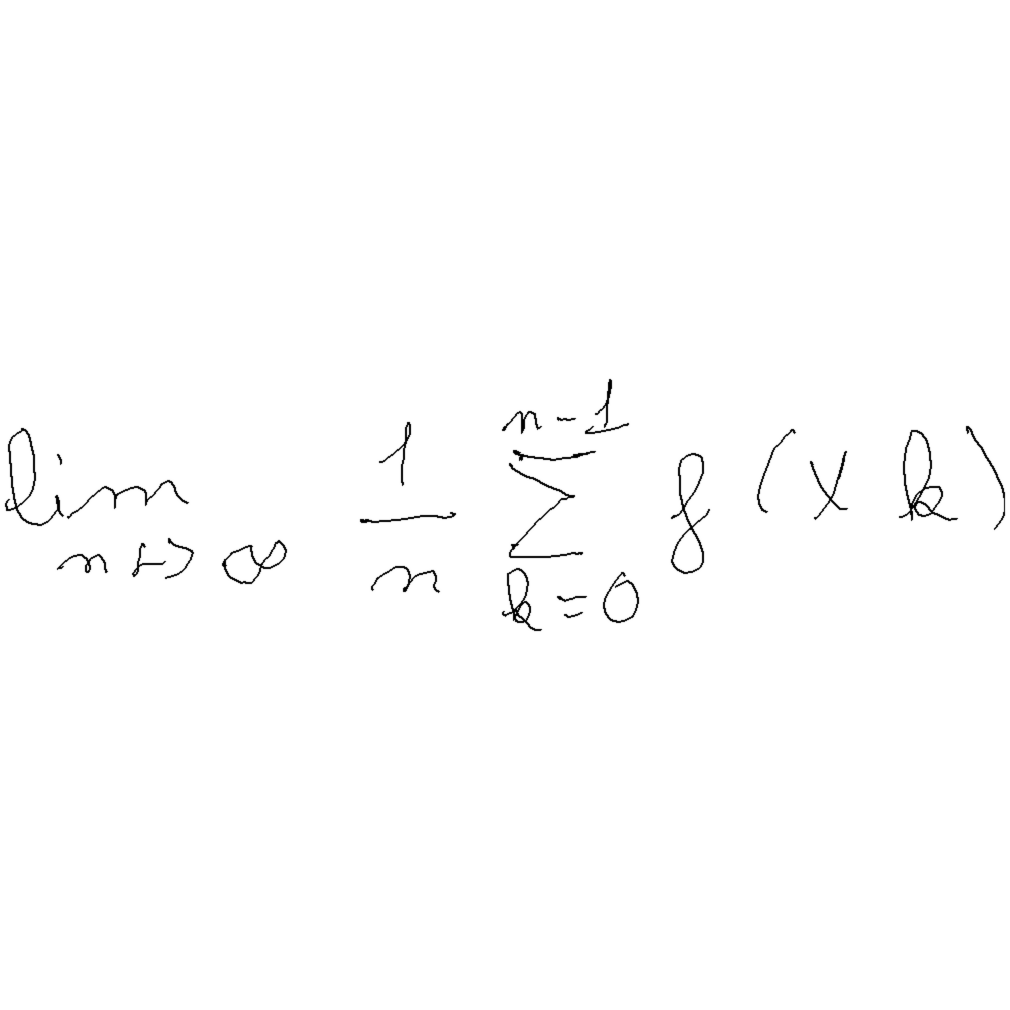 \lim_{n \mapsto \infty} \frac{1}{n} \sum_{k=0}^{n-1} f(xk)